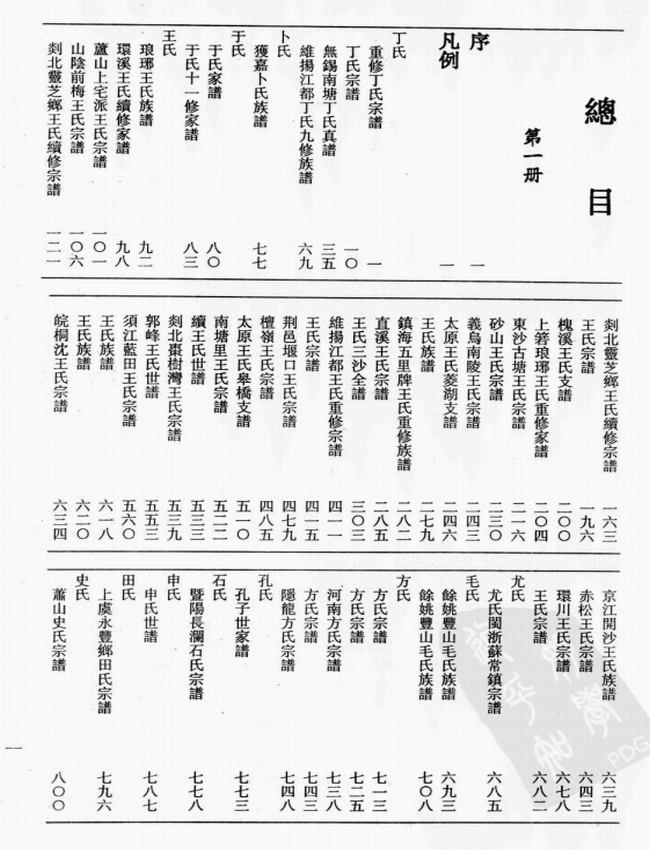 總目
第一册
序 一
凡例 一
丁氏
重修丁氏宗譜 一
丁氏宗譜 一〇
無錫南塘丁氏真譜 三五
維揚江都丁氏九修族譜 六九
卜氏
獲嘉卜氏族譜 七七
于氏
于氏家譜 八〇
于氏十一修家譜 八三
王氏
琅瑯王氏族譜 九二
環溪王氏續修家譜 九八
蘆山上宅派王氏宗譜 一〇一
山陰前梅王氏宗譜 一〇六
剡北靈芝鄉王氏續修宗譜 一二一
剡北靈芝鄉王氏續修宗譜 一六三
王氏宗譜 一九六
槐溪王氏支譜 二〇〇
上箬琅瑯王氏重修家譜 二〇四
東沙古塘王氏宗譜 二一六
砂山王氏宗譜 二三〇
義烏南陵王氏宗譜 二四三
太原王氏菱湖支譜 二四六
王氏族譜 二七九
鎮海五里牌王氏重修族譜 二八二
直溪王氏宗譜 二八五
王氏三沙全譜 三〇三
維揚江都王氏重修宗譜 四一一
王氏宗譜 四一五
荆邑堰口王氏宗譜 四七九
檀嶺王氏宗譜 四八五
太原王氏皋橋支譜 五一〇
南塘里王氏宗譜 五二二
續王氏世譜 五三三
剡北棗樹灣王氏宗譜 五三九
郭峰王氏世譜 五五三
須江藍田王氏宗譜 五六〇
王氏族譜 六一八
王氏族譜 六二〇
皖桐沈王氏宗譜 六三四
京江開沙王氏族譜 六三九
赤松王氏宗譜 六四三
環川王氏宗譜 六七八
王氏宗譜 六八二
尤氏
尤氏閩浙蘇常鎮宗譜 六八五
毛氏
餘姚豐山毛氏族譜 六九三
餘姚豐山毛氏族譜 七〇八
方氏
方氏宗譜 七一三
方氏宗譜 七二五
河南方氏宗譜 七三八
方氏宗譜 七四三
隱龍方氏宗譜 七四八
孔氏
孔子世家譜 七七三
石氏
暨陽長瀾石氏宗譜 七七八
申氏
申氏世譜 七八七
田氏
上虞永豐鄉田氏宗譜 七九六
史氏
蕭山史氏宗譜 八〇〇
一
PDG